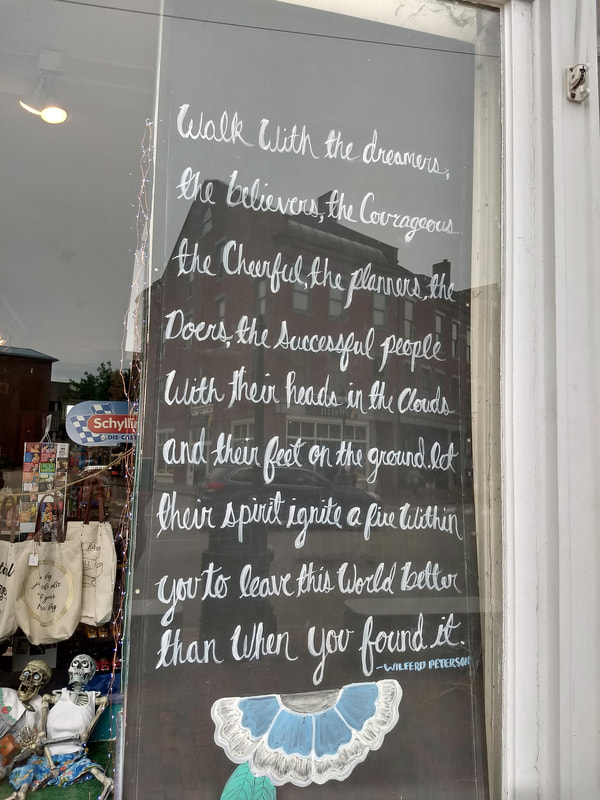 Walk With the dreamers,
the believers, the Courageous
the Cheerful, the planners, the
Doers, the successful people
With their heads in the Clouds
and their feet on the ground. let
their spirit ignite a fire Within
you to leave this World better
than When you found it.
-WILFERD PETERSON
Schylli
DIE-CAST